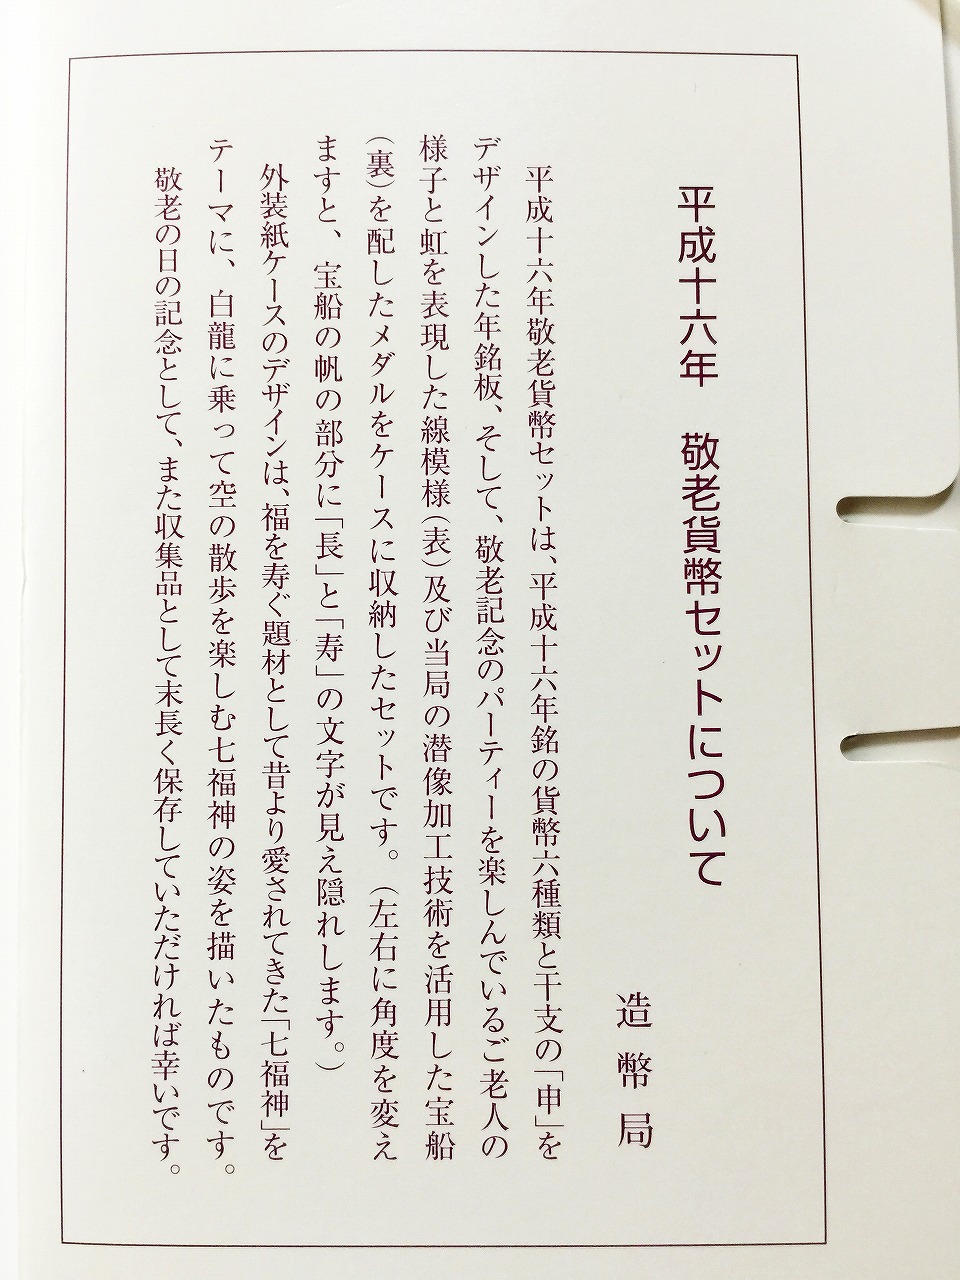 平成十六年　敬老貨幣セットについて
造幣局
平成十六年敬老貨幣セットは、平成十六年銘の貨幣六種類と干支の「申」を
デザインした年銘板、そして、敬老記念のパーティーを楽しんでいるご老人の
様子と虹を表現した線模様（表）及び当局の潜像加工技術を活用した宝船
（裏）を配したメダルをケースに収納したセットです。（左右に角度を変え
ますと、宝船の帆の部分に「長」と「寿」の文字が見え隠れします。）
外装紙ケースのデザインは、福を寿ぐ題材として昔より愛されてきた「七福神」を
テーマに、白龍に乗って空の散歩を楽しむ七福神の姿を描いたものです。
敬老の日の記念として、また収集品として末長く保存していただければ幸いです。